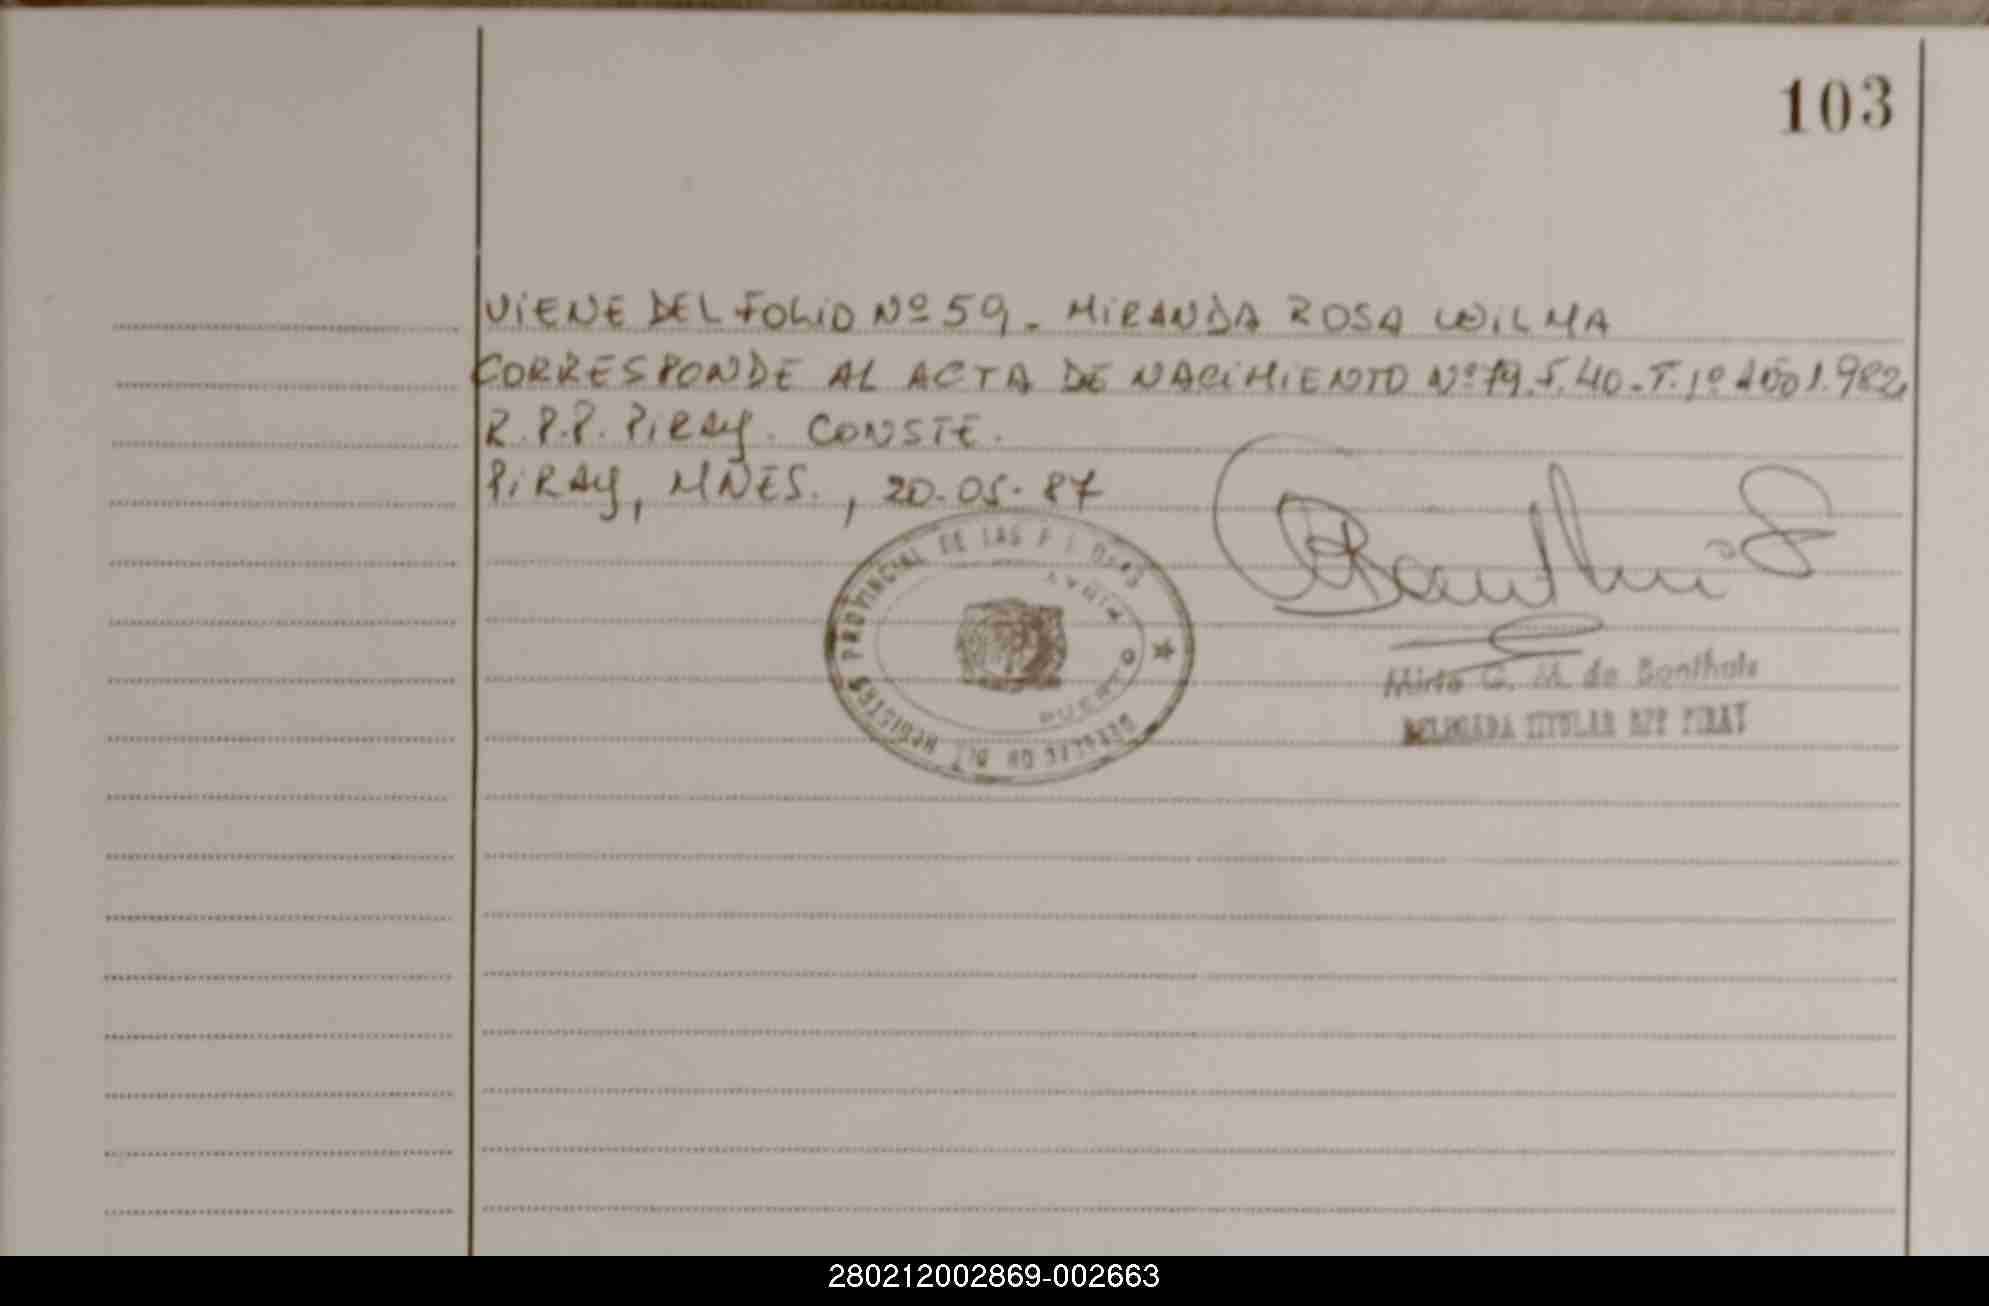 103
VIENE DEL FOLIO Nº 59. MIRANDA ROSA WILMA
CORRESPONDE AL ACTA DE NACIMIENTO Nº 79. F. 40. T. 1º AÑO 1.982
R.P.P. PIRAY. CONSTE.
PIRAY, MNES., 20.05.87
PROVINCIAL DE LAS
PUERTO PIRAY
Mirta G. M. de Bonthuis
DELEGADA TITULAR RPP PIRAY
280212002869-002663